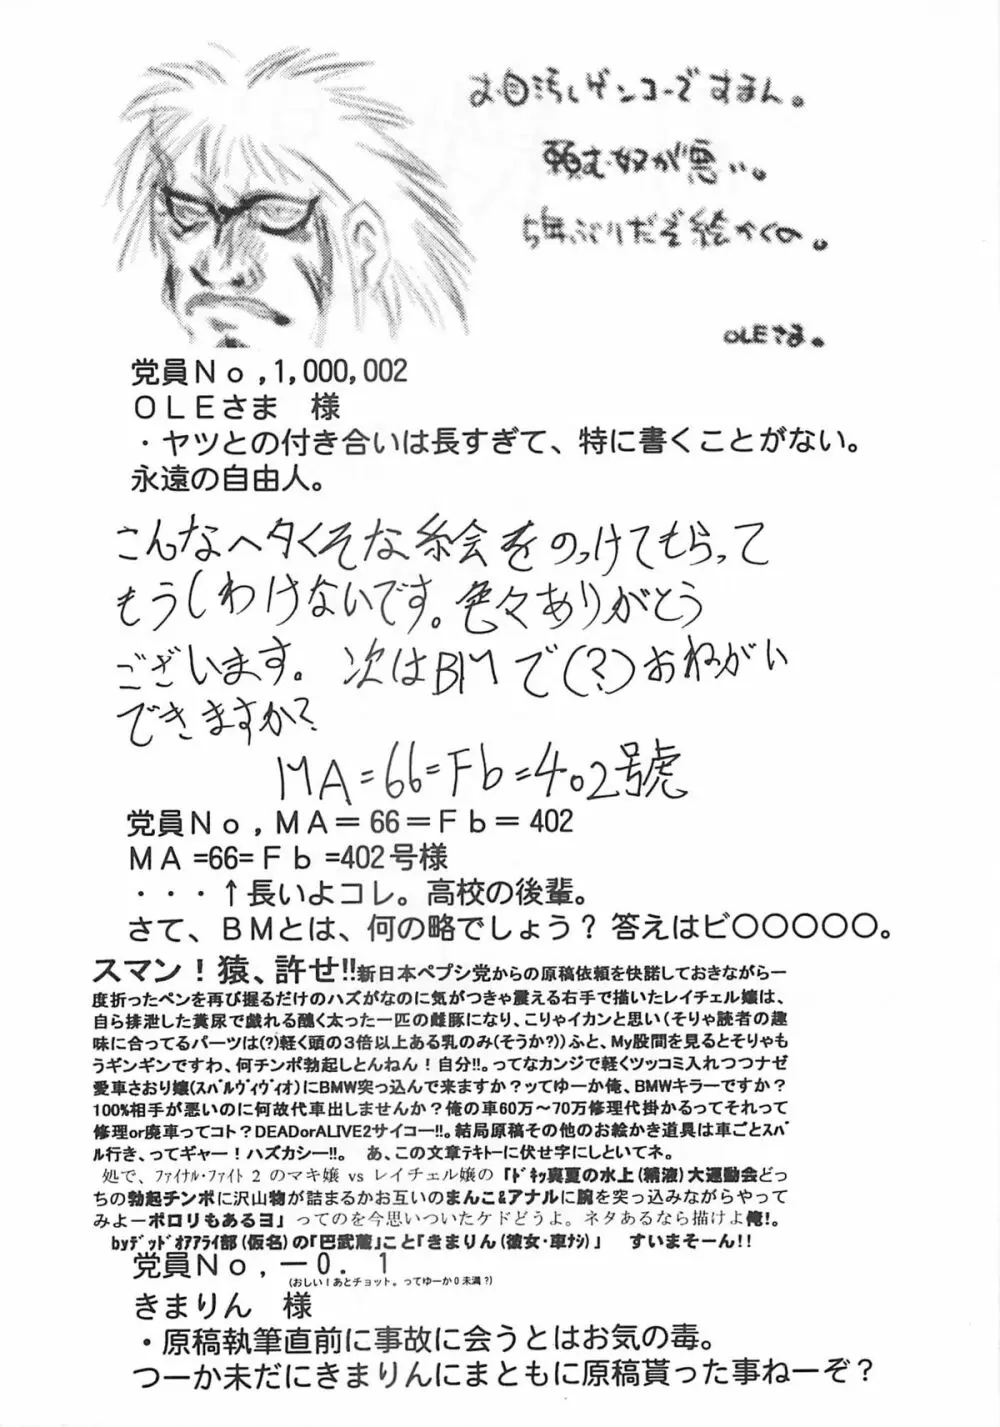 お目汚しゲンコーですまん。
頼む奴が悪い。
5年ぶりだぞ絵かくの。
OLEさま。
党員No,1,000,002
OLEさま 様
・ヤツとの付き合いは長すぎて、特に書くことがない。
永遠の自由人。
こんなヘタくそな絵をのっけてもらって
もうしわけないです。色々ありがとう
ございます。次はBMで(?)おねがい
できますか?
MA=66=Fb=402号虎
党員No,MA=66=Fb=402
MA=66=Fb=402号様
・・・↑長いよコレ。高校の後輩。
さて、BMとは、何の略でしょう? 答えはビ〇〇〇〇〇。
スマン!猿、許せ!!新日本ペプシ党からの原稿依頼を快諾しておきながら一
度折ったペンを再び握るだけのハズがなのに気がつきゃ震える右手で描いたレイチェル嬢は、
自ら排泄した糞尿で戯れる醜く太った一匹の雌豚になり、こりゃイカンと思い(そりゃ読者の趣
味に合ってるパーツは(?)軽く頭の3倍以上ある乳のみ(そうか?))ふと、My股間を見るとそりゃも
うギンギンですわ、何チンポ勃起しとんねん!自分!!。ってなカンジで軽くツッコミ入れつつナゼ
愛車さおり嬢(スバルヴィヴィオ)にBMW突っ込んで来ますか?ッてゆーか俺、BMWキラーですか?
100%相手が悪いのに何故代車出しませんか?俺の車60万～70万修理代掛かるってそれって
修理or廃車ってコト?DEADorALIVE2サイコー!!。結局原稿その他のお絵かき道具は車ごとスバ
ル行き、ってギャー!ハズカシー!!。 あ、この文章テキトーに伏せ字にしといてネ。
処で、ファイナル・ファイト2のマキ嬢 vs レイチェル嬢の「ドキッ真夏の水上(精液)大運動会どっ
ちの勃起チンポに沢山物が詰まるかお互いのまんこ&アナルに腕を突っ込みながらやって
みよーポロリもあるヨ」ってのを今思いついたケドどうよ。ネタあるなら描けよ俺!。
byデッドオアアライ部(仮名)の「巴武蔵」こと「きまりん(彼女・車ナシ)」 すいまそーん!!
党員No,－0.1
(おしい!あとチョット。ってゆーか0未満?)
きまりん 様
・原稿執筆直前に事故に会うとはお気の毒。
つーか未だにきまりんにまともに原稿貰った事ねーぞ?